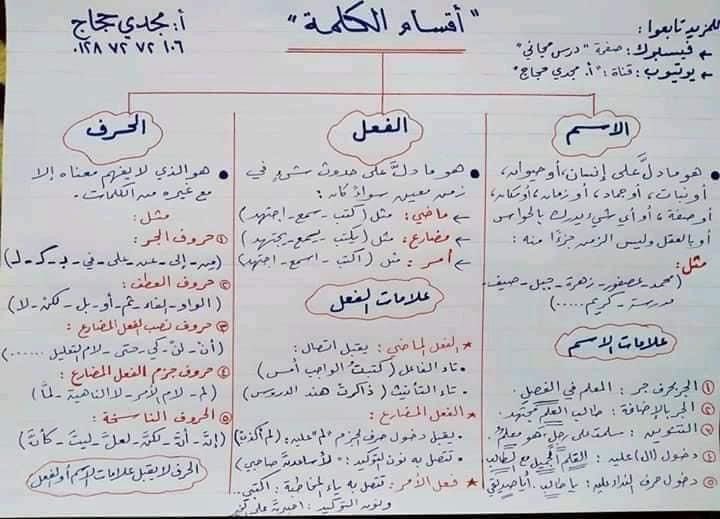 "أقسام الكلمة"
أ: مجدي حجاج
٠١٢٨ ٧٢ ٧٢ ١٠٦
للمزيد تابعوا:
← فيسبوك: صفحة "درس مجاني"
← يوتيوب: قناة: "أ. مجدي حجاج"
الاسم
هو ما دلَّ على إنسان، أو حيوان،
أو نبات، أو جماد، أو زمان، أو مكان،
أو صفة، أو أي شيء يدرك بالحواس
أو بالعقل وليس الزمن جزءًا منه:
مثل:
(محمد - عصفور - زهرة - جبل - صيف -
مدرسة - كريم .....)
علامات الاسم
① الجر بحرف جر: المعلم في الفصل.
② الجر بالإضافة: طالب العلم مجتهد.
③ التنوين: سلمت على رجلٍ هو معلمٌ.
④ دخول (ال) عليه: القلم الجميل مع الطالب
⑤ دخول حرف النداء عليه: يا طالب، أيا صديقي
الفعل
هو ما دلَّ على حدوث شيء في
زمن معين سواءً كان:
← ماضي: مثل (كتب - سمع - اجتهد)
← مضارع: مثل (يكتب - يسمع - يجتهد)
← أمر: مثل (اكتب - اسمع - اجتهد)
علامات الفعل
* الفعل الماضي: يقبل اتصال:
• تاء الفاعل (كتبتُ الواجب أمس)
• تاء التأنيث (ذاكرتْ هند الدروس)
* الفعل المضارع:
• يقبل دخول حرف الجزم "لم" عليه: (لم أكذب)
• تتصل به نون التوكيد: "لأساعدنَّ صاحبي)
* فعل الأمر: تتصل به ياء المخاطبة: اكتبي.
ونون التوكيد:
الحرف
هو الذي لا يفهم معناه إلا
مع غيره من الكلمات.
مثل:
① حروف الجر:
(من - إلى - عن - على - في - بـ - كـ - لـ)
② حروف العطف:
(الواو - الفاء - ثم - أو - بل - لكن - لا)
③ حروف نصب الفعل المضارع:
(أن - لن - كي - حتى - لام التعليل ......)
④ حروف جزم الفعل المضارع:
(لم - لام الأمر - لا الناهية - لمَّا)
⑤ الحروف الناسخة:
(إنَّ - أنَّ - لكنَّ - لعلَّ - ليتَ - كأنَّ)
الحرف لا يقبل علامات الاسم أو الفعل